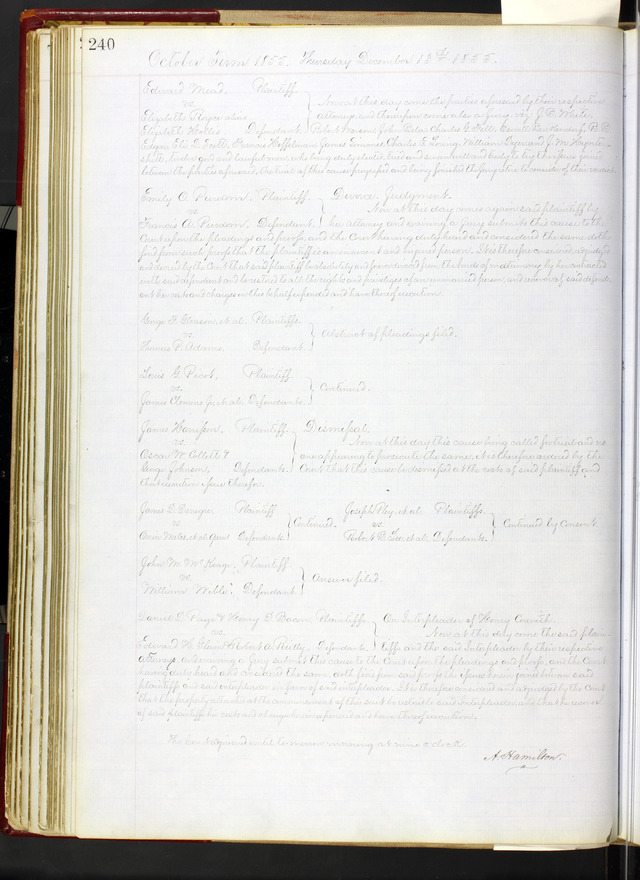 240
October Term 1855. Thursday December 13th 1855.
Edward Mead, Plaintiff
vs.
Elizabeth alias
Elizabeth Defendant.
Now at this day come the parties aforesaid by their respective
attorneys, and thereupon comes also a jury, viz, J. B. White,
Charles
James Simmons, Charles E. William
good and lawful men, who being duly elected, tried and sworn well and truly to try the issues joined
between the parties aforesaid, the trial of this cause progressed and being finished the jury retire to consider of their verdict.
Emily C. Purdom, Plaintiff
vs.
Francis A. Purdom, Defendant.
Divorce. Judgment.
Now at this day comes again said plaintiff by
her attorney and waiving a Jury submits this cause to the
Court upon the pleadings and proofs, and the Court having duly heard and considered the same doth
find from such proofs that the plaintiff is an innocent and injured person. It is therefore considered adjudged
and decreed by the Court that said plaintiff be absolutely and forever divorced from the bonds of matrimony by her contracted
with said defendant and be restored to all the rights and privileges of an unmarried person, and recover of said defend-
ant her costs and charges in this behalf expended and have thereof execution.
George F. Gleason, et al. Plaintiffs
vs.
Thomas P. Adams, Defendant.
Abstract of pleadings filed.
Louis G. Picot, Plaintiff
vs.
James Clemens Jr. et al. Defendants.
Continued.
James Harrison, Plaintiff
vs.
Oscar W. Collett &
George Johnson, Defendants.
Dismissal.
Now at this day this cause being called for trial and no
one appearing to prosecute the same, it is therefore ordered by the
Court that this cause be dismissed at the costs of said plaintiff and
that execution issue therefor.
James D. Plaintiff
vs.
et al. Defendants.
Continued.
Joseph et al. Plaintiffs.
vs.
Robert et al. Defendants.
Continued by Consent.
John M. Plaintiff
vs.
William Defendant
Answer filed.
Daniel D. Page & Henry D. Bacon, Plaintiffs
vs.
Edward H. & Robert a. Reilly, Defendants.
On Interpleader of Henry
Now at this day come the said plain-
tiffs and the said Interpleader by their respective
attorneys and waiving a Jury submit this cause to the Court upon the pleadings and proofs, and the Court
having duly heard and considered the same, doth find from said proofs the issues herein joined between said
plaintiffs and said interpleader in favor of said interpleader. It is therefore considered and adjudged by the Court
that the property attached at the commencement of this suit be released to said Interpleader and that he recover
of said plaintiffs his costs and charges herein expended and have thereof execution.
The Court adjourned until to morrow morning at nine o'clock.
A. Hamilton.